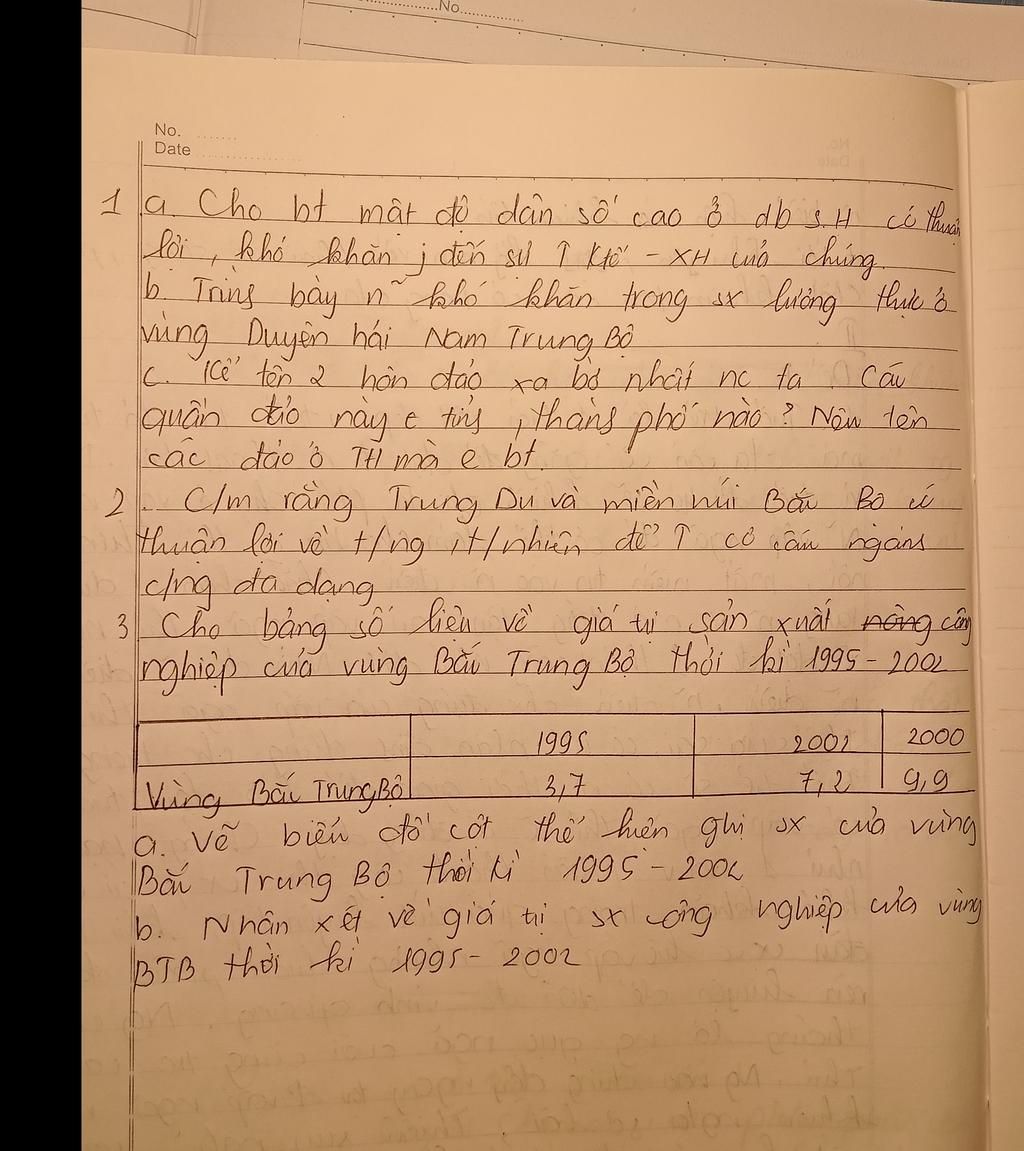 No.
No.
Date
1 a. Cho bt mật độ dân số cao ở đb s.H có thuận
lợi, khó khăn j đến sự ↑ Ktế - XH của chúng.
b. Trình bày n~ khó khăn trong sx lương thực ở
vùng Duyên hải Nam Trung Bộ
c. Kể tên 2 hòn đảo xa bờ nhất nc ta. Các
quần đảo này c tỉnh, thành phố nào? Nêu tên
các đảo ở TH mà e bt.
2. C/m rằng Trung Du và miền núi Bắc Bộ có
thuận lợi về t/ng, t/nhiên để ↑ cơ cấu ngành
c/ng đa dạng
3 Cho bảng số liệu về giá trị sản xuất nông công
nghiệp của vùng Bắc Trung Bộ thời kì 1995 - 2002
1995 2002 2000
Vùng Bắc Trung Bộ 3,7 7,2 9,9
a. Vẽ biểu đồ cột thể hiện ghị sx của vùng
Bắc Trung Bộ thời kì 1995 - 2002
b. Nhận xét về giá trị sx công nghiệp của vùng
BTB thời kì 1995 - 2002